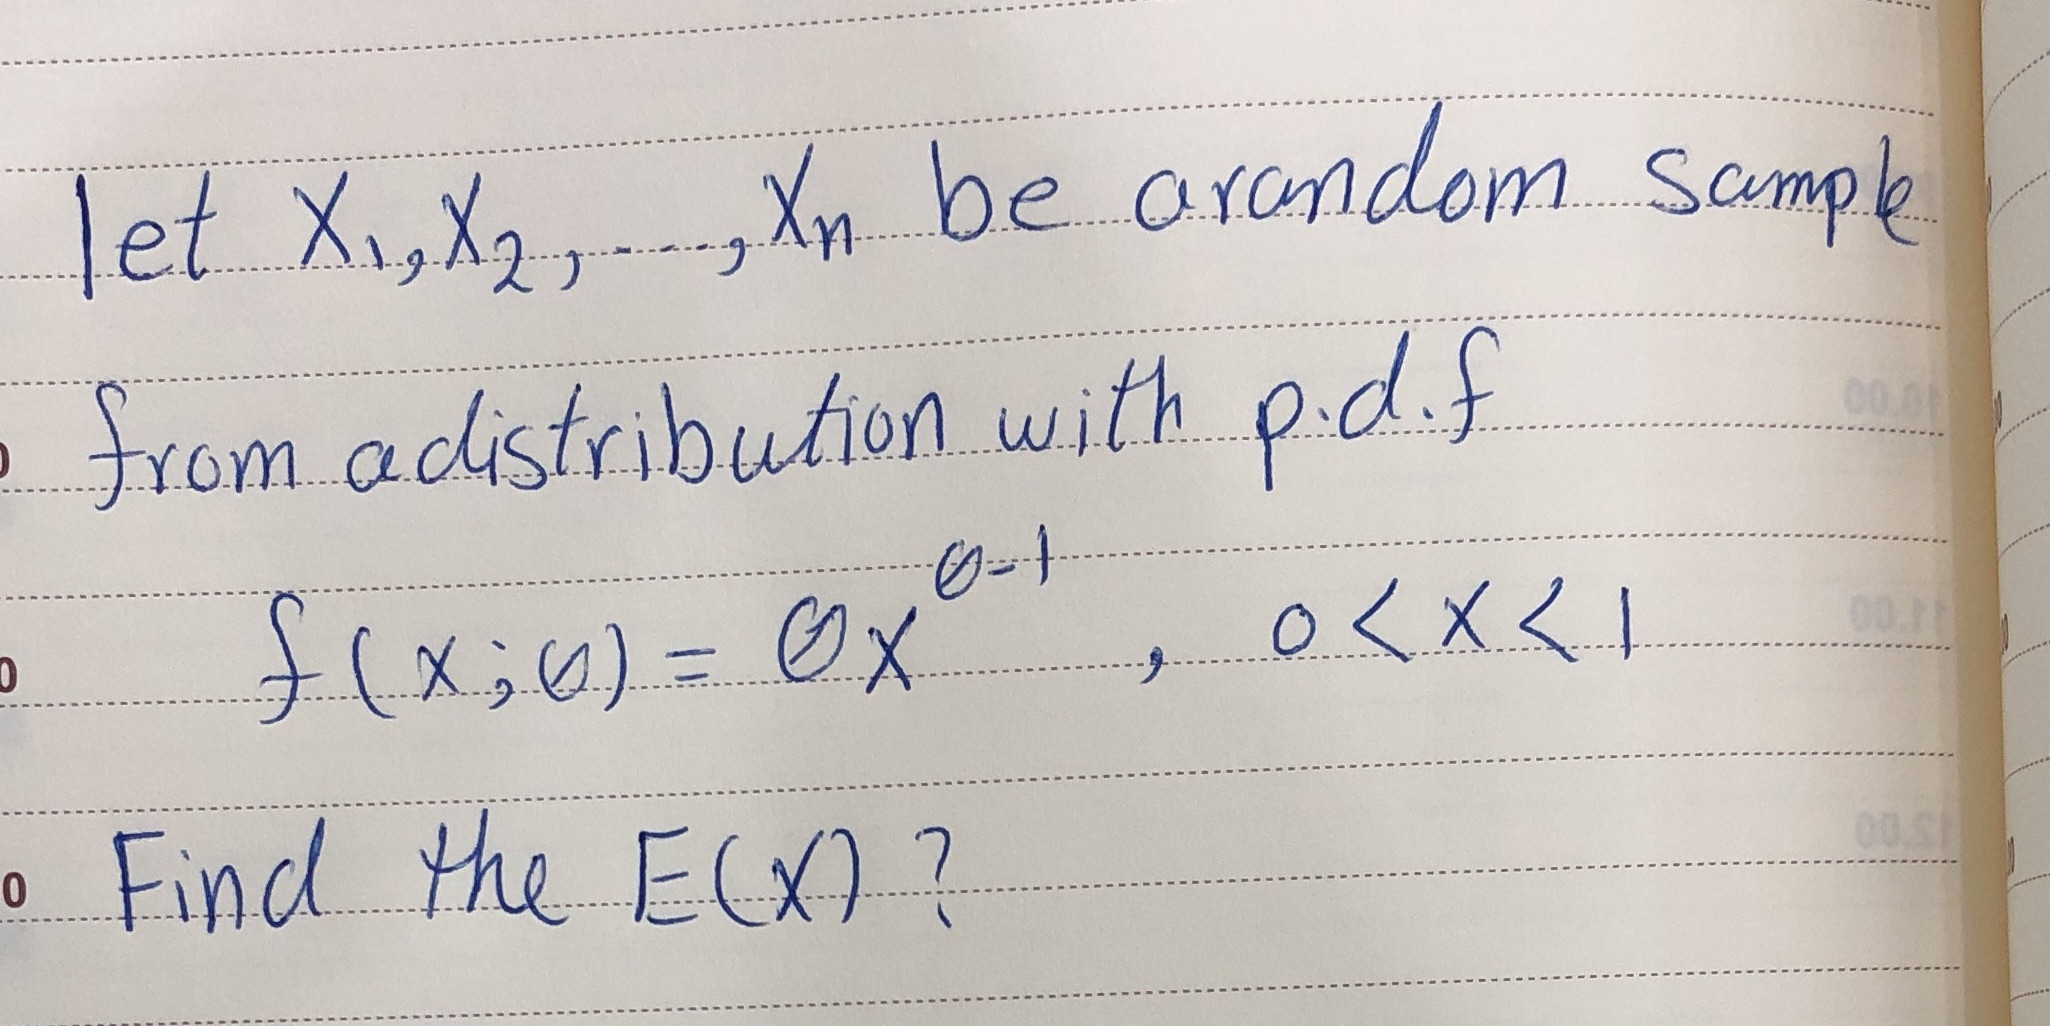 let X₁, X₂, ...., Xn be a random sample
from a distribution with p.d.f
f(x;θ) = θx^(θ-1) , 0 < x < 1
Find the E(X) ?
10.00
11.00
12.00
0
0
0